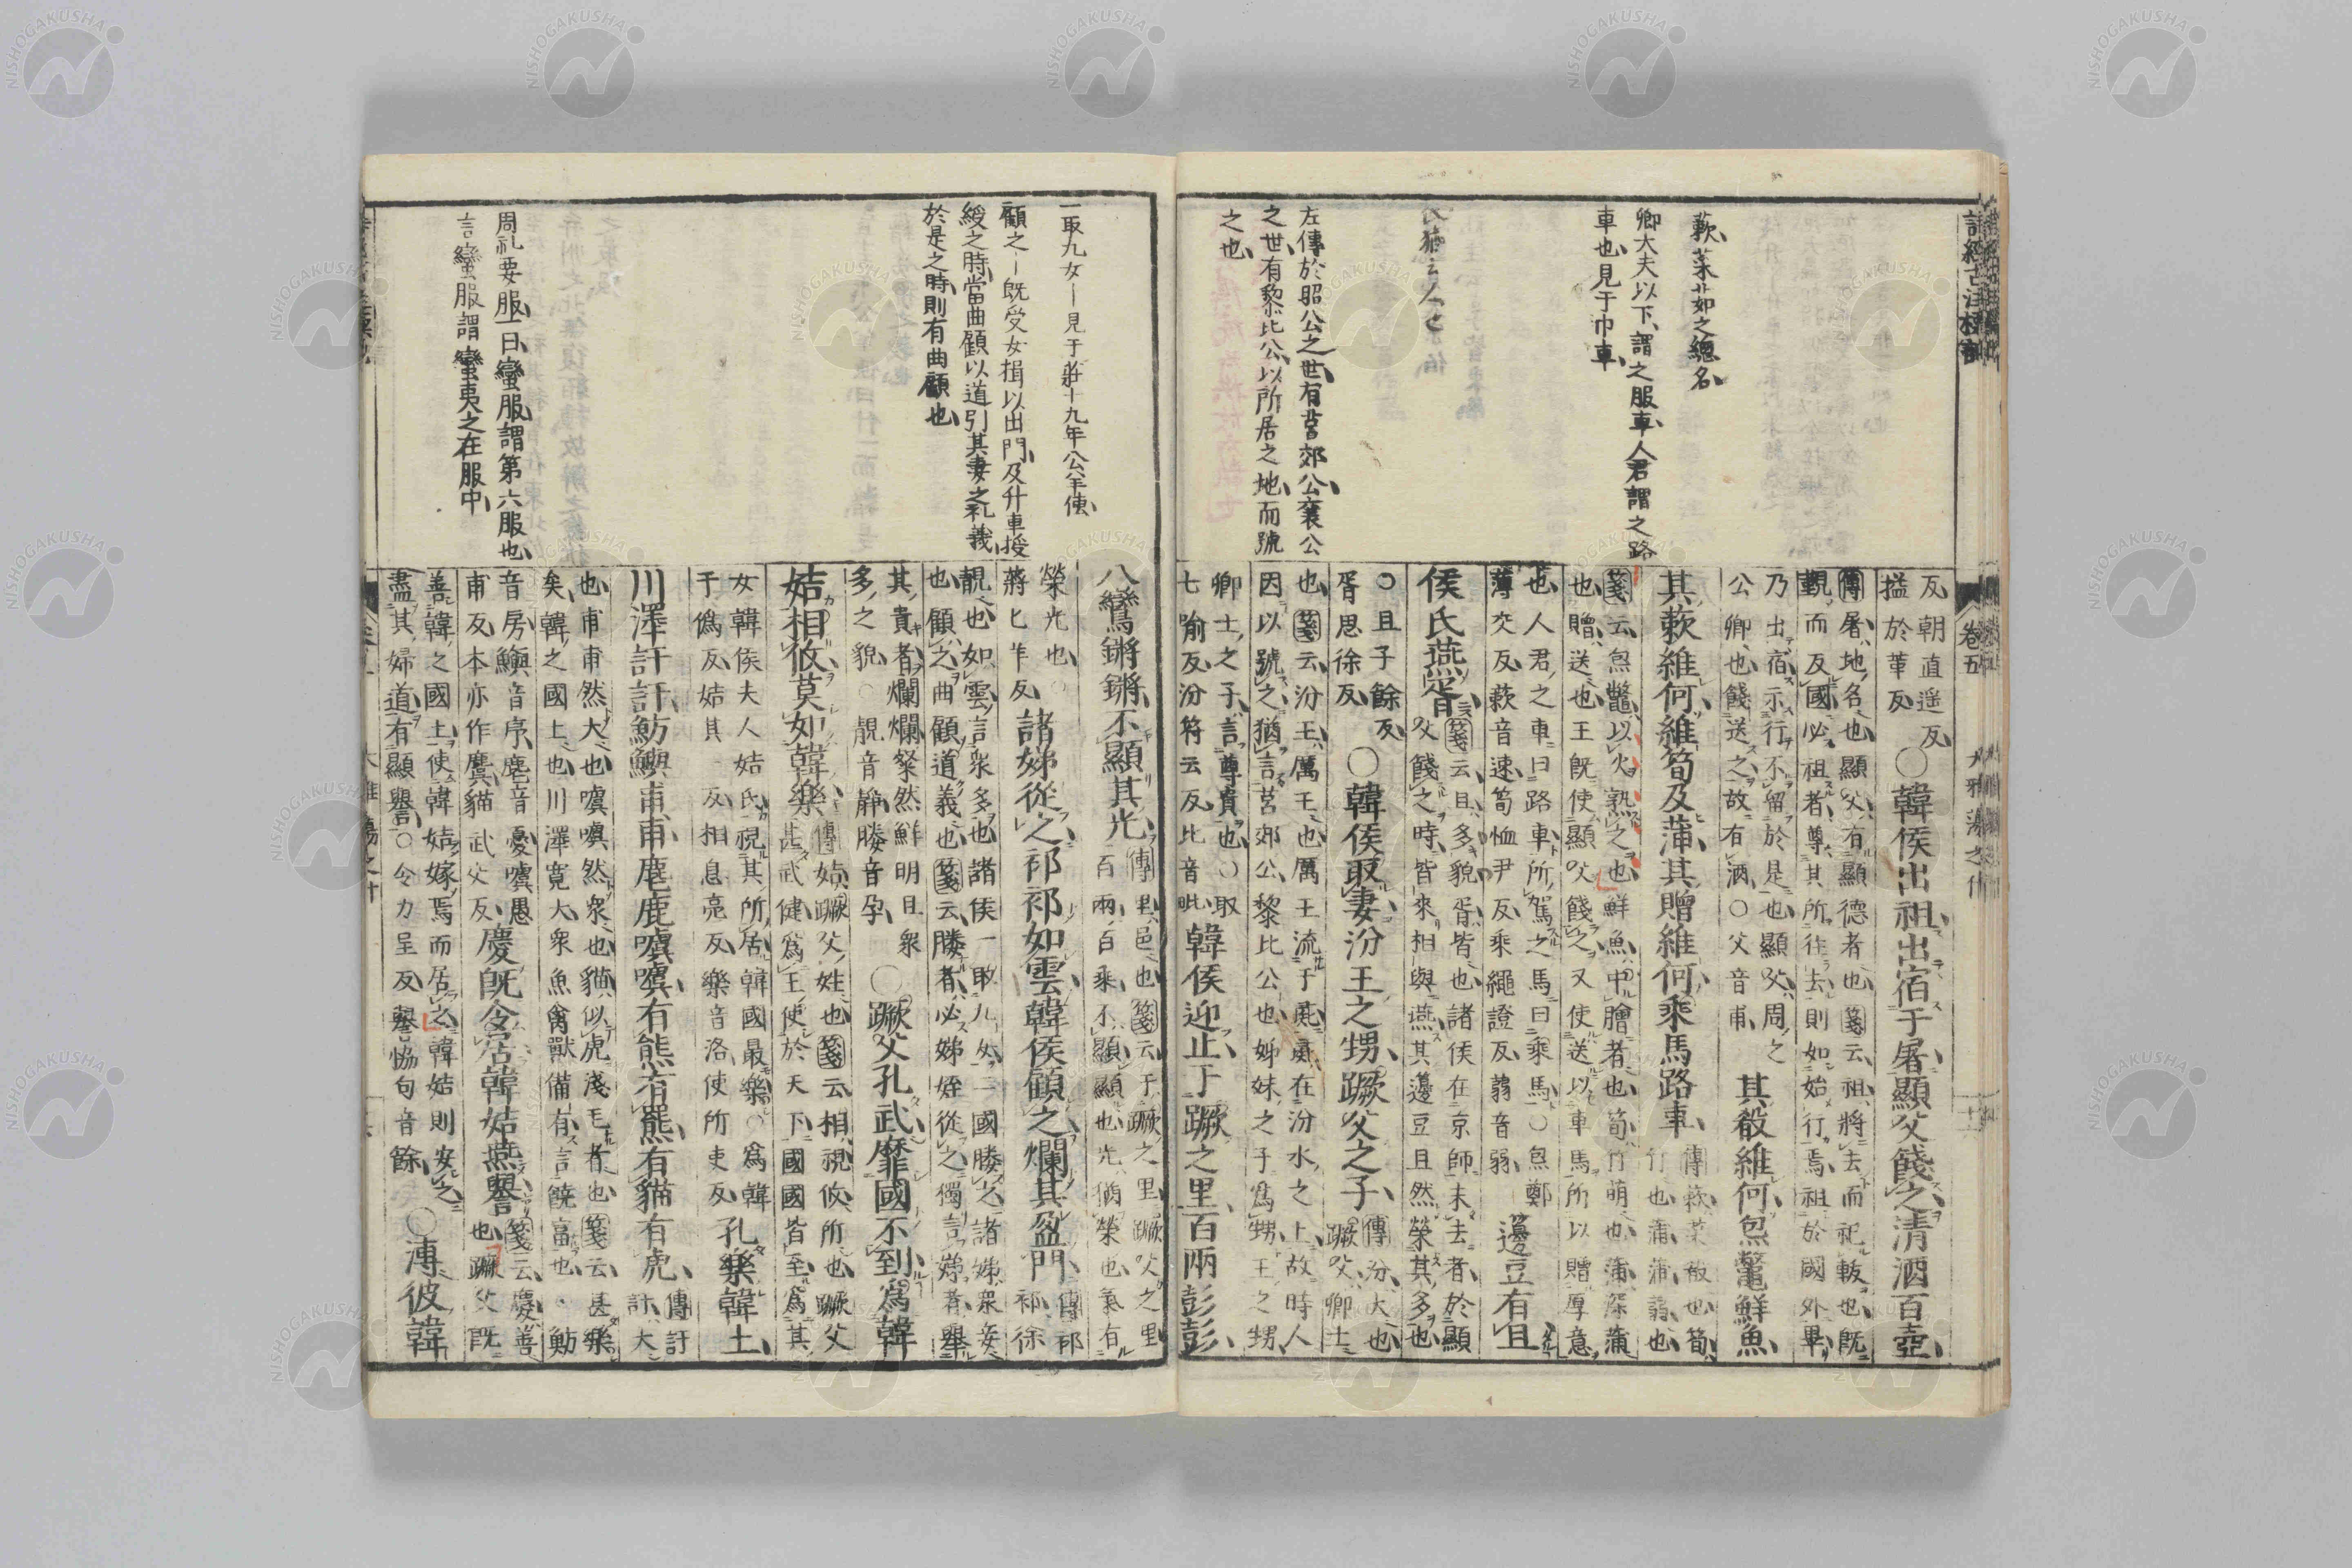 蔌菜茹之總名
卿大夫以下謂之服車人君謂之路
車也見于巾車
左傳於昭公之世有莒郊公襄公
之世有黎比公以所居之地而號
之也
反朝直遥反
搤於革反
○韓侯出祖出宿于屠顯父餞之清酒百壺
傳屠地名也顯父有顯德者也箋云祖將去而祀軷也既
觀而反國必祖者尊其所往去則如始行焉祖於國外畢
乃出宿示行不留於是也顯父周之
公卿也餞送之故有酒○父音甫
其殽維何炰鼈鮮魚
其蔌維何維筍及蒲其贈維何乘馬路車
傳蔌菜殽也筍
竹也蒲蒲蒻也
箋云炰鼈以火熟之也鮮魚中膾者也筍竹萌也蒲深蒲
也贈送也王既使顯父餞之又使送以車馬所以贈厚意
也人君之車曰路車所駕之馬曰乘馬○炰鄭
薄交反蔌音速筍恤尹反乘繩證反蒻音弱
籩豆有且
侯氏燕胥
箋云且多貌胥皆也諸侯在京師未去者於顯
父餞之時皆來相與燕其籩豆且然榮其多也
○且子餘反
胥思徐反
○韓侯取妻汾王之甥蹶父之子
傳汾大也
蹶父卿士
也箋云汾王厲王也厲王流于彘彘在汾水之上故時人
因以號之猶言莒郊公黎比公也姊妹之子爲甥王之甥
卿士之子言尊貴也○取
七喻反汾符云反比音毗
韓侯迎止于蹶之里百兩彭彭
詩經古注標
卷五
大雅蕩之什
一取九女ー見于莊十九年公羊傳
顧之ー既受女揖以出門及升車授
綏之時當曲顧以道引其妻之礼義
於是之時則有曲顧也
周礼要服一曰蠻服謂第六服也
言蠻服謂蠻夷之在服中
八鸞鏘鏘不顯其光
傳里邑也箋云于蹶之里蹶父之里
百兩百乘不顯顯也光猶榮也氣有
榮光也○
蔣匕乍反
諸娣從之祁祁如雲韓侯顧之爛其盈門
傳祁
祁徐
靚也如雲言衆多也諸侯一取九女二國媵之諸娣衆妾
也顧之曲顧道義也箋云媵者必娣姪從之獨言娣者舉
其貴者爛爛粲然鮮明且衆
多之貌○靚音靜媵音孕
○蹶父孔武靡國不到爲韓
姞相攸莫如韓樂
傳姞蹶父姓也箋云相視攸所也蹶父
甚武健爲王使於天下國國皆至爲其
女韓侯夫人姞氏視其所居韓國最樂○爲韓
于僞反姞其一反相息亮反樂音洛使所吏反
孔樂韓土
川澤訏訏魴鱮甫甫麀鹿噳噳有熊有羆有貓有虎
傳訏
訏大
也甫甫然大也噳噳然衆也貓似虎淺毛者也箋云甚樂
矣韓之國土也川澤寛大衆魚禽獸備有言饒富也・魴
音房鱮音序麀音憂噳愚
甫反本亦作麌貓武父反
慶既令居韓姞燕譽
箋云慶善
也蹶父既
善韓之國土使韓姞嫁焉而居之韓姞則安之
盡其婦道有顯譽○令力呈反譽恊句音餘
○溥彼韓